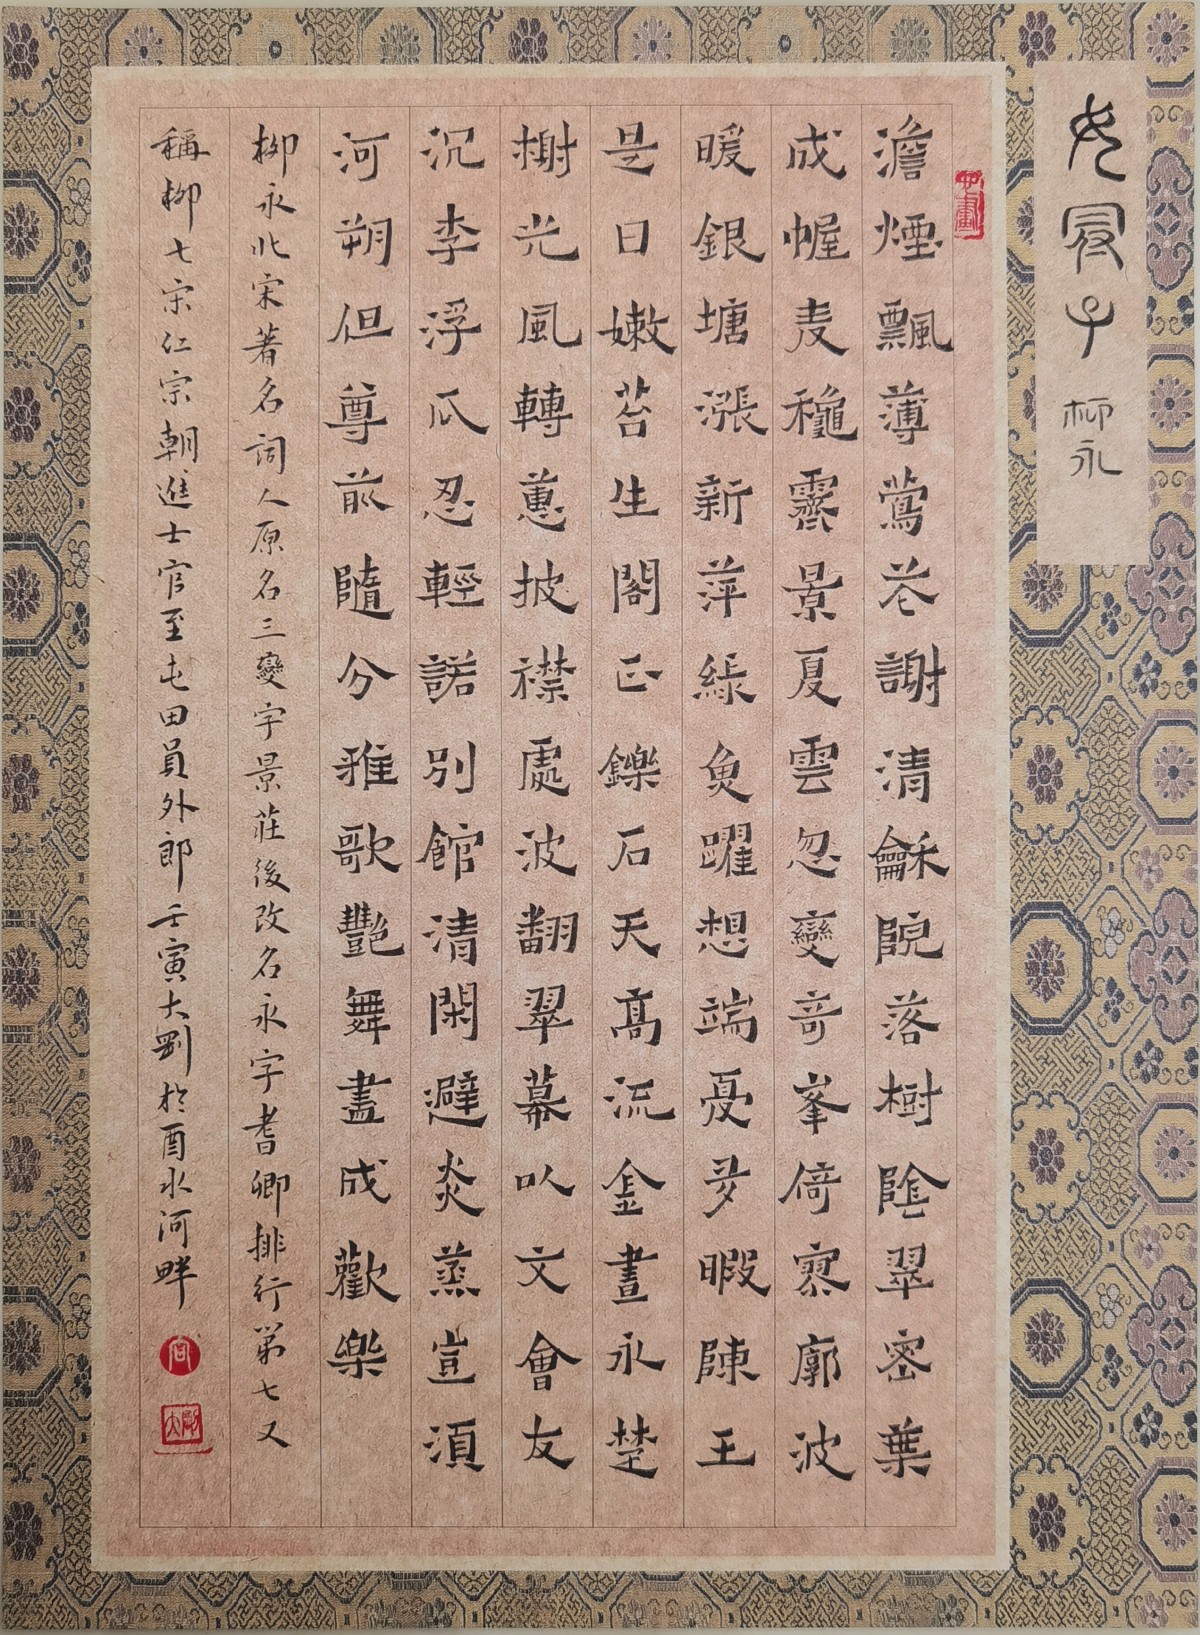 女冠子 柳永
澹煙飄薄鶯花謝清龢院落樹陰翠密葉
成幄麦穐霽景夏雲忽變奇峯倚寥廓波
暖銀塘漲新萍綠魚躍想端憂多暇陳王
是日嫩苔生閣正鑠石天高流金晝永楚
榭光風轉蕙披襟處波翻翠幕以文會友
沉李浮瓜忍輕諾別館清閑避炎蒸豈須
河朔但尊前隨分雅歌豔舞盡成歡樂
柳永北宋著名詞人原名三變字景莊後改名永字耆卿排行第七又
稱柳七宋仁宗朝進士官至屯田員外郎壬寅大剛於酉水河畔
大剛